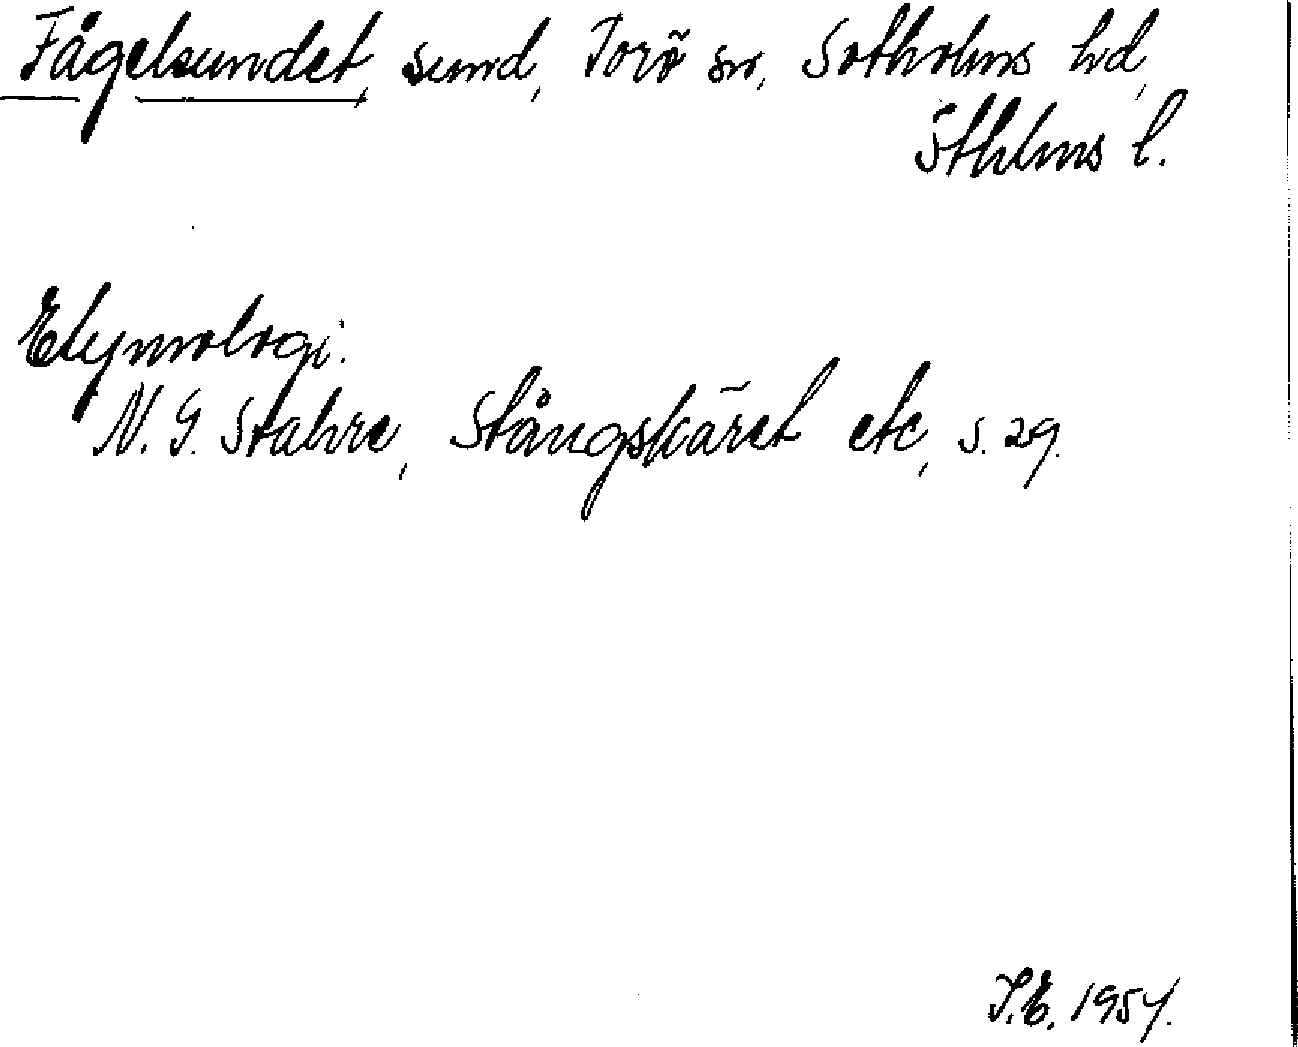 Fågelsundet, sund, Torö sn, Sotholms hd,
Sthlms l.
Etymologi:
N. G. Stahre, Stångskäret etc, s. 29.
I.E. 1954.